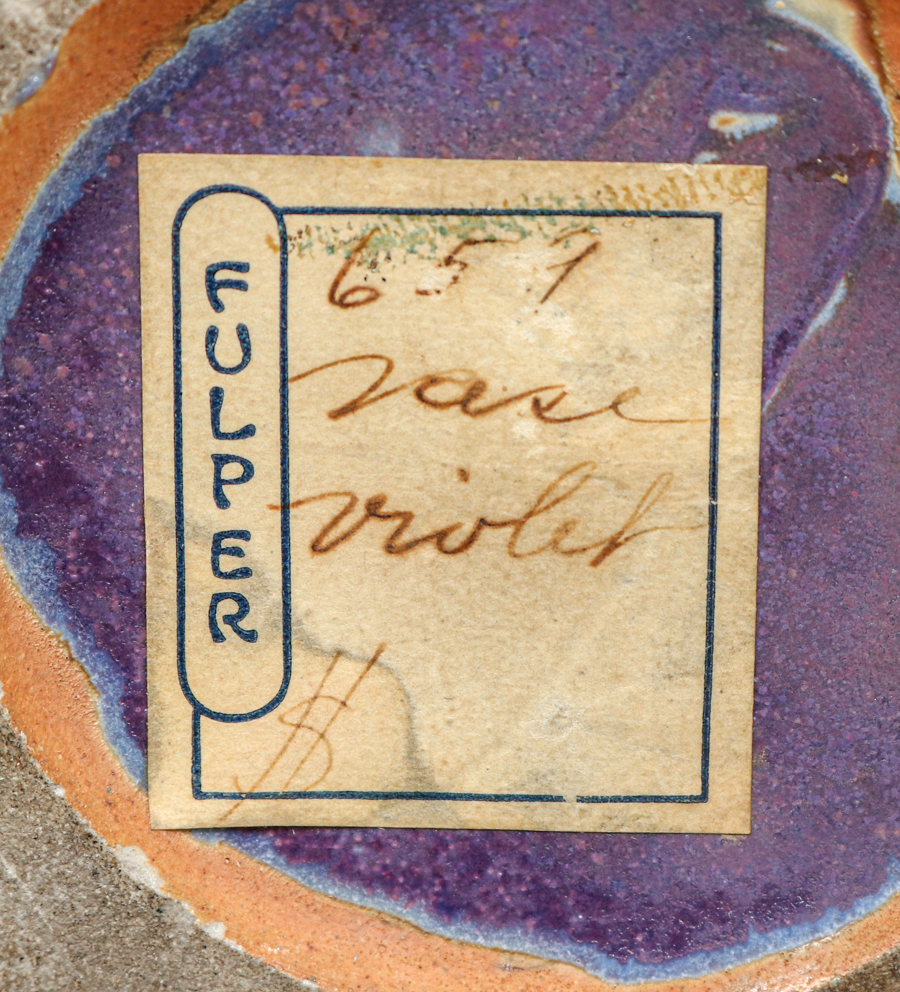 FULPER
659
vase
violet
$